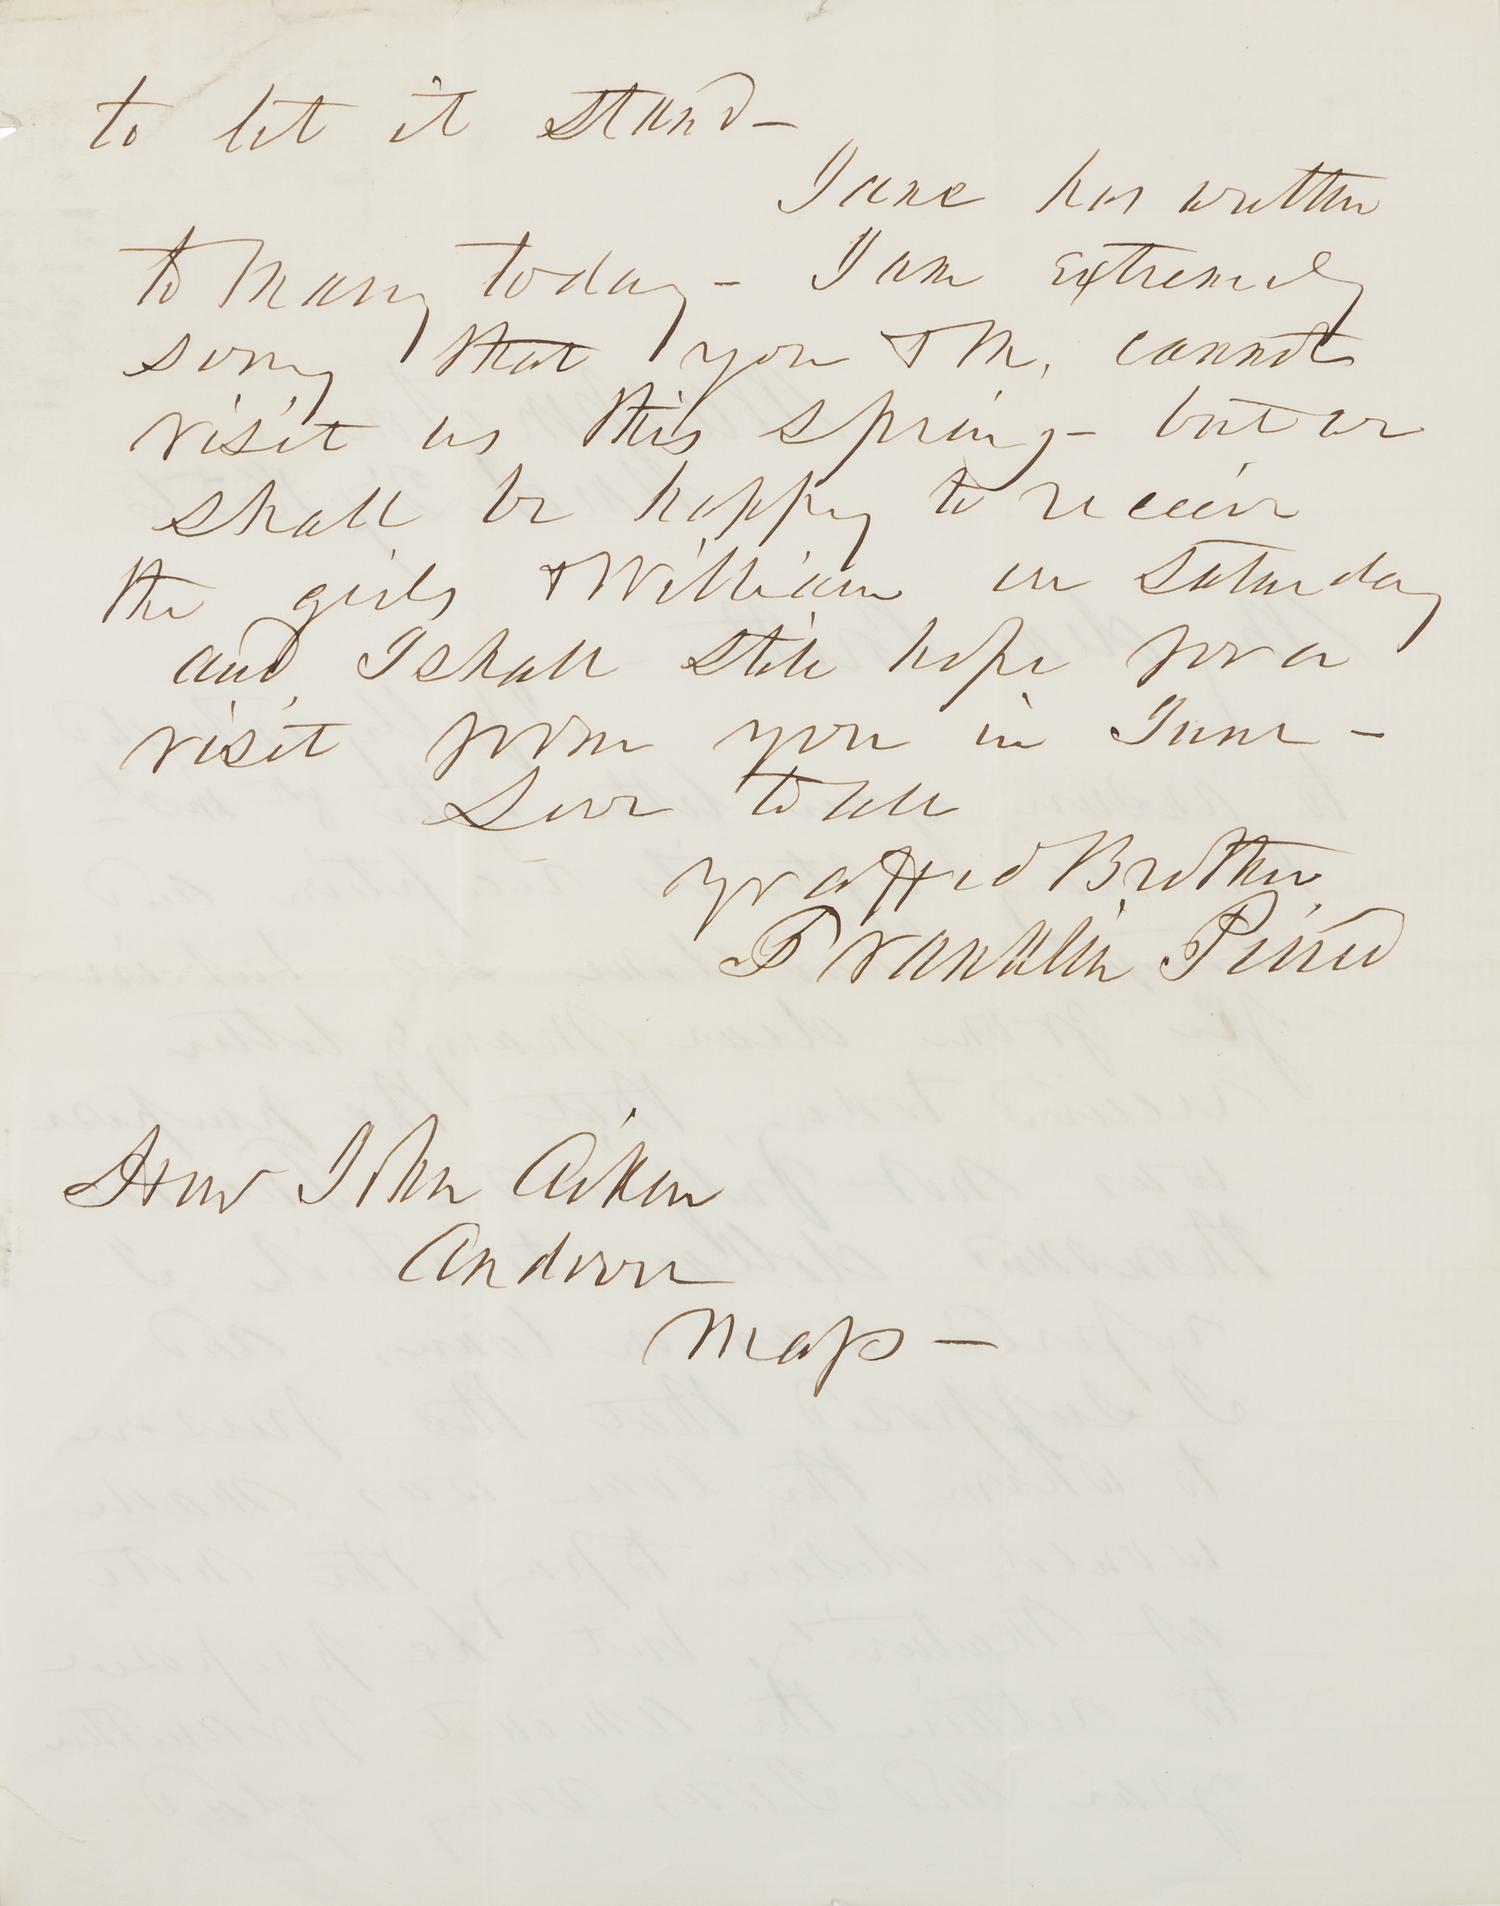 to let it stand—
Jane has written
to Mary today— I am extremely
sorry that you & M. cannot
visit us this spring— but we
shall be happy to receive
the girls & William on Saturday
and I shall still hope for a
visit from you in June—
Love to all
yr affed Brother
Franklin Pierce
Hon John Aiken
Andover
Mass—